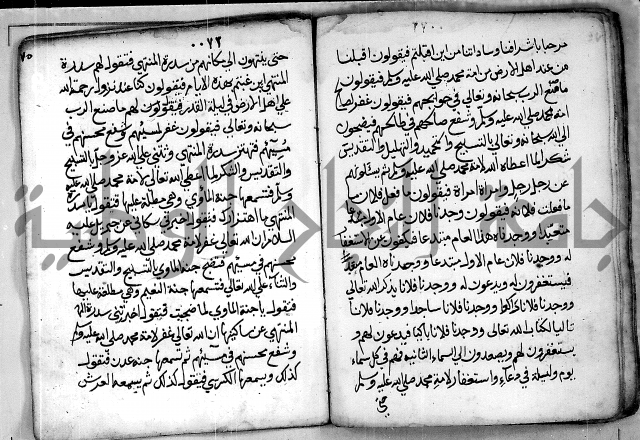 ٢٦٠٠
مرحبا باشرافنا وساداتنا من اين اقبلتم فيقولون اقبلنا
من عند اهل الارض من امة محمد صلى الله عليه وسلم فيقولون
ما صنع الرب سبحانه وتعالى في حوائجهم فيقولون غفر لصالح
امة محمد صلى الله عليه وسلم وشفع صالحهم في طالحهم فيضجون
الى الله سبحانه وتعالى بالتسبيح والتحميد والتهليل والتقديس
شكرا لما اعطاه الله لامة محمد صلى الله عليه وسلم ثم يسئلونهم
عن رجل رجل وامراة امراة فيقولون ما فعل فلان
ما فعلت فلانة فيقولون وجدنا فلان عام الاول
متعبدا ووجدناه هذا العام مبتدعا فيكفون عن الاستغفار
له ووجدنا فلان عام الاول مبتدعا ووجدناه العام
فيستغفرون له ويدعون له ووجدنا فلانا يذكر الله تعالى
ووجدنا فلانا راكعا ووجدنا فلانا ساجدا ووجدنا فلانا
تاليا لكتاب الله تعالى ووجدنا فلانا باكيا فيدعون لهم و
يستغفرون لهم ويصعدون الى السماء الثانية فهم في كل سماء
يوم وليلة في دعاء واستغفار لامة محمد صلى الله عليه وسلم
حتى
٠٠٧٢
٧٥
حتى ينتهون الى مكانهم من سدرة المنتهى فتقول لهم سدرة
المنتهى اين غبتم هذه الايام فيقولون كنا عند نزول رحمة الله
على اهل الارض في ليلة القدر فتقول لهم ما صنع الرب
سبحانه وتعالى فيقولون غفر لمسيئهم وشفع محسنهم في
مسيئهم فتهتز سدرة المنتهى وتثني على الله عز وجل بالتسبيح
والتقديس والشكر لما اعطى الله تعالى لامة محمد صلى الله عليه
وسلم فتسمعها جنة الماوى وهي مطلة عليها فتقول يا سدرة
المنتهى ما اهتزازك فتقول اخبرني سكاني عن جبريل عليه
السلام ان الله تعالى غفر لامة محمد صلى الله عليه وسلم وشفع
محسنهم في مسيئهم فتضج جنة الماوى بالتسبيح والتقديس
والثناء على الله تعالى فتسمعها جنة النعيم وهي مطلة عليها
فتقول يا جنة الماوى لما ضجيت فتقول اخبرتني سدرة
المنتهى عن سكانها ان الله تعالى غفر لامة محمد صلى الله عليه وسلم
وشفع محسنهم في مسيئهم ثم تسمعها جنة عدن فتقول
كذلك ويسمعها الكرسي فيقول كذلك ثم يسمعه العرش
جامعة النجاح الوطنية